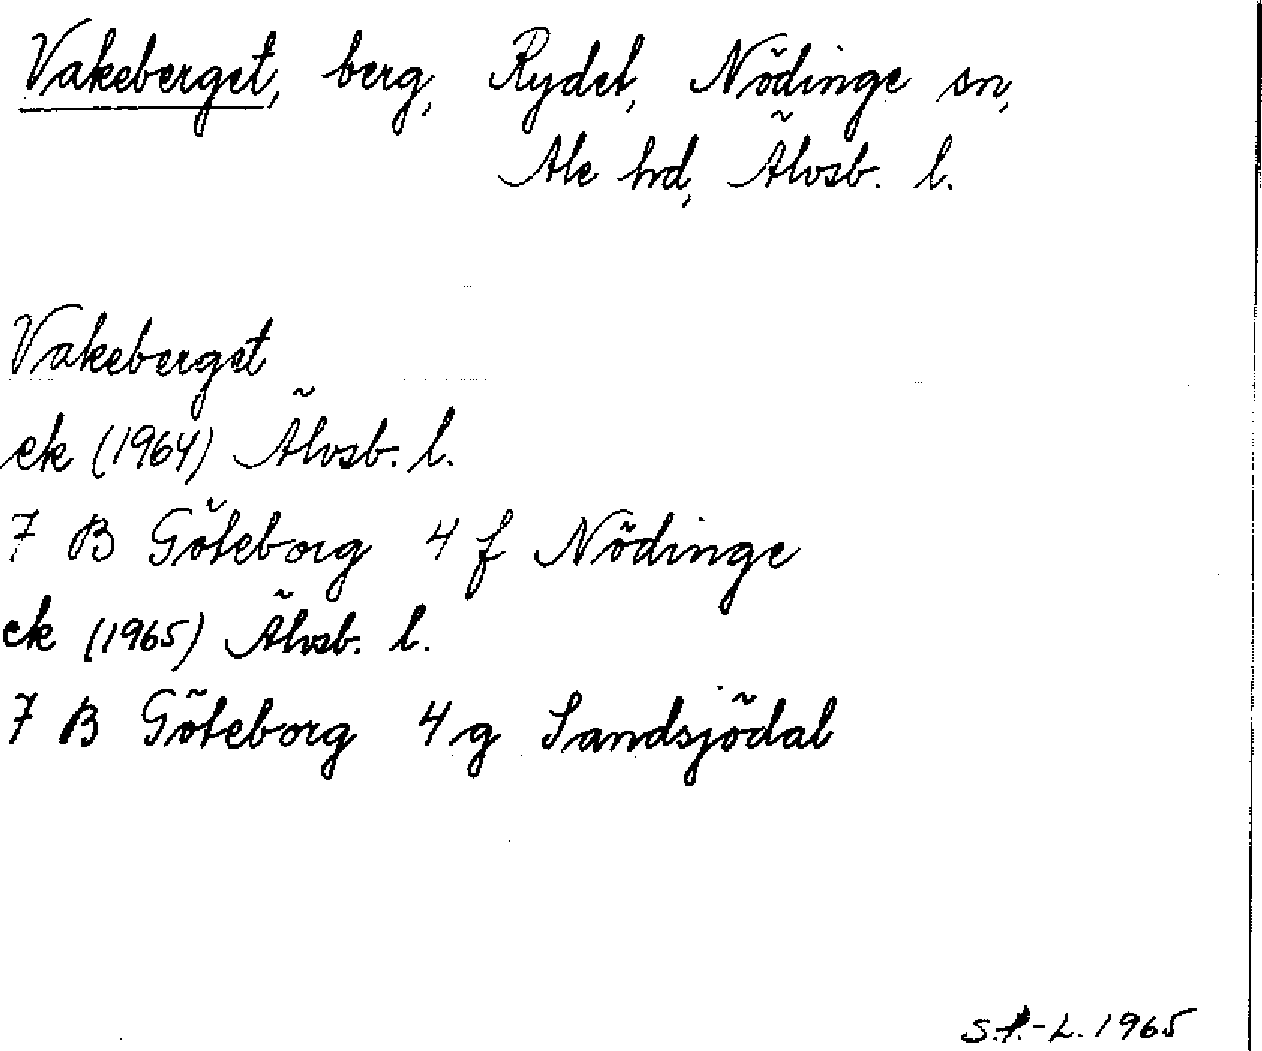 Vakeberget, berg, Rydet, Nödinge sn,
Ale hd, Älvsb. l.
Vakeberget
ek (1964) Älvsb. l.
7 B Göteborg 4 f Nödinge
ek (1965) Älvsb. l.
7 B Göteborg 4 g Sandsjödal
1965